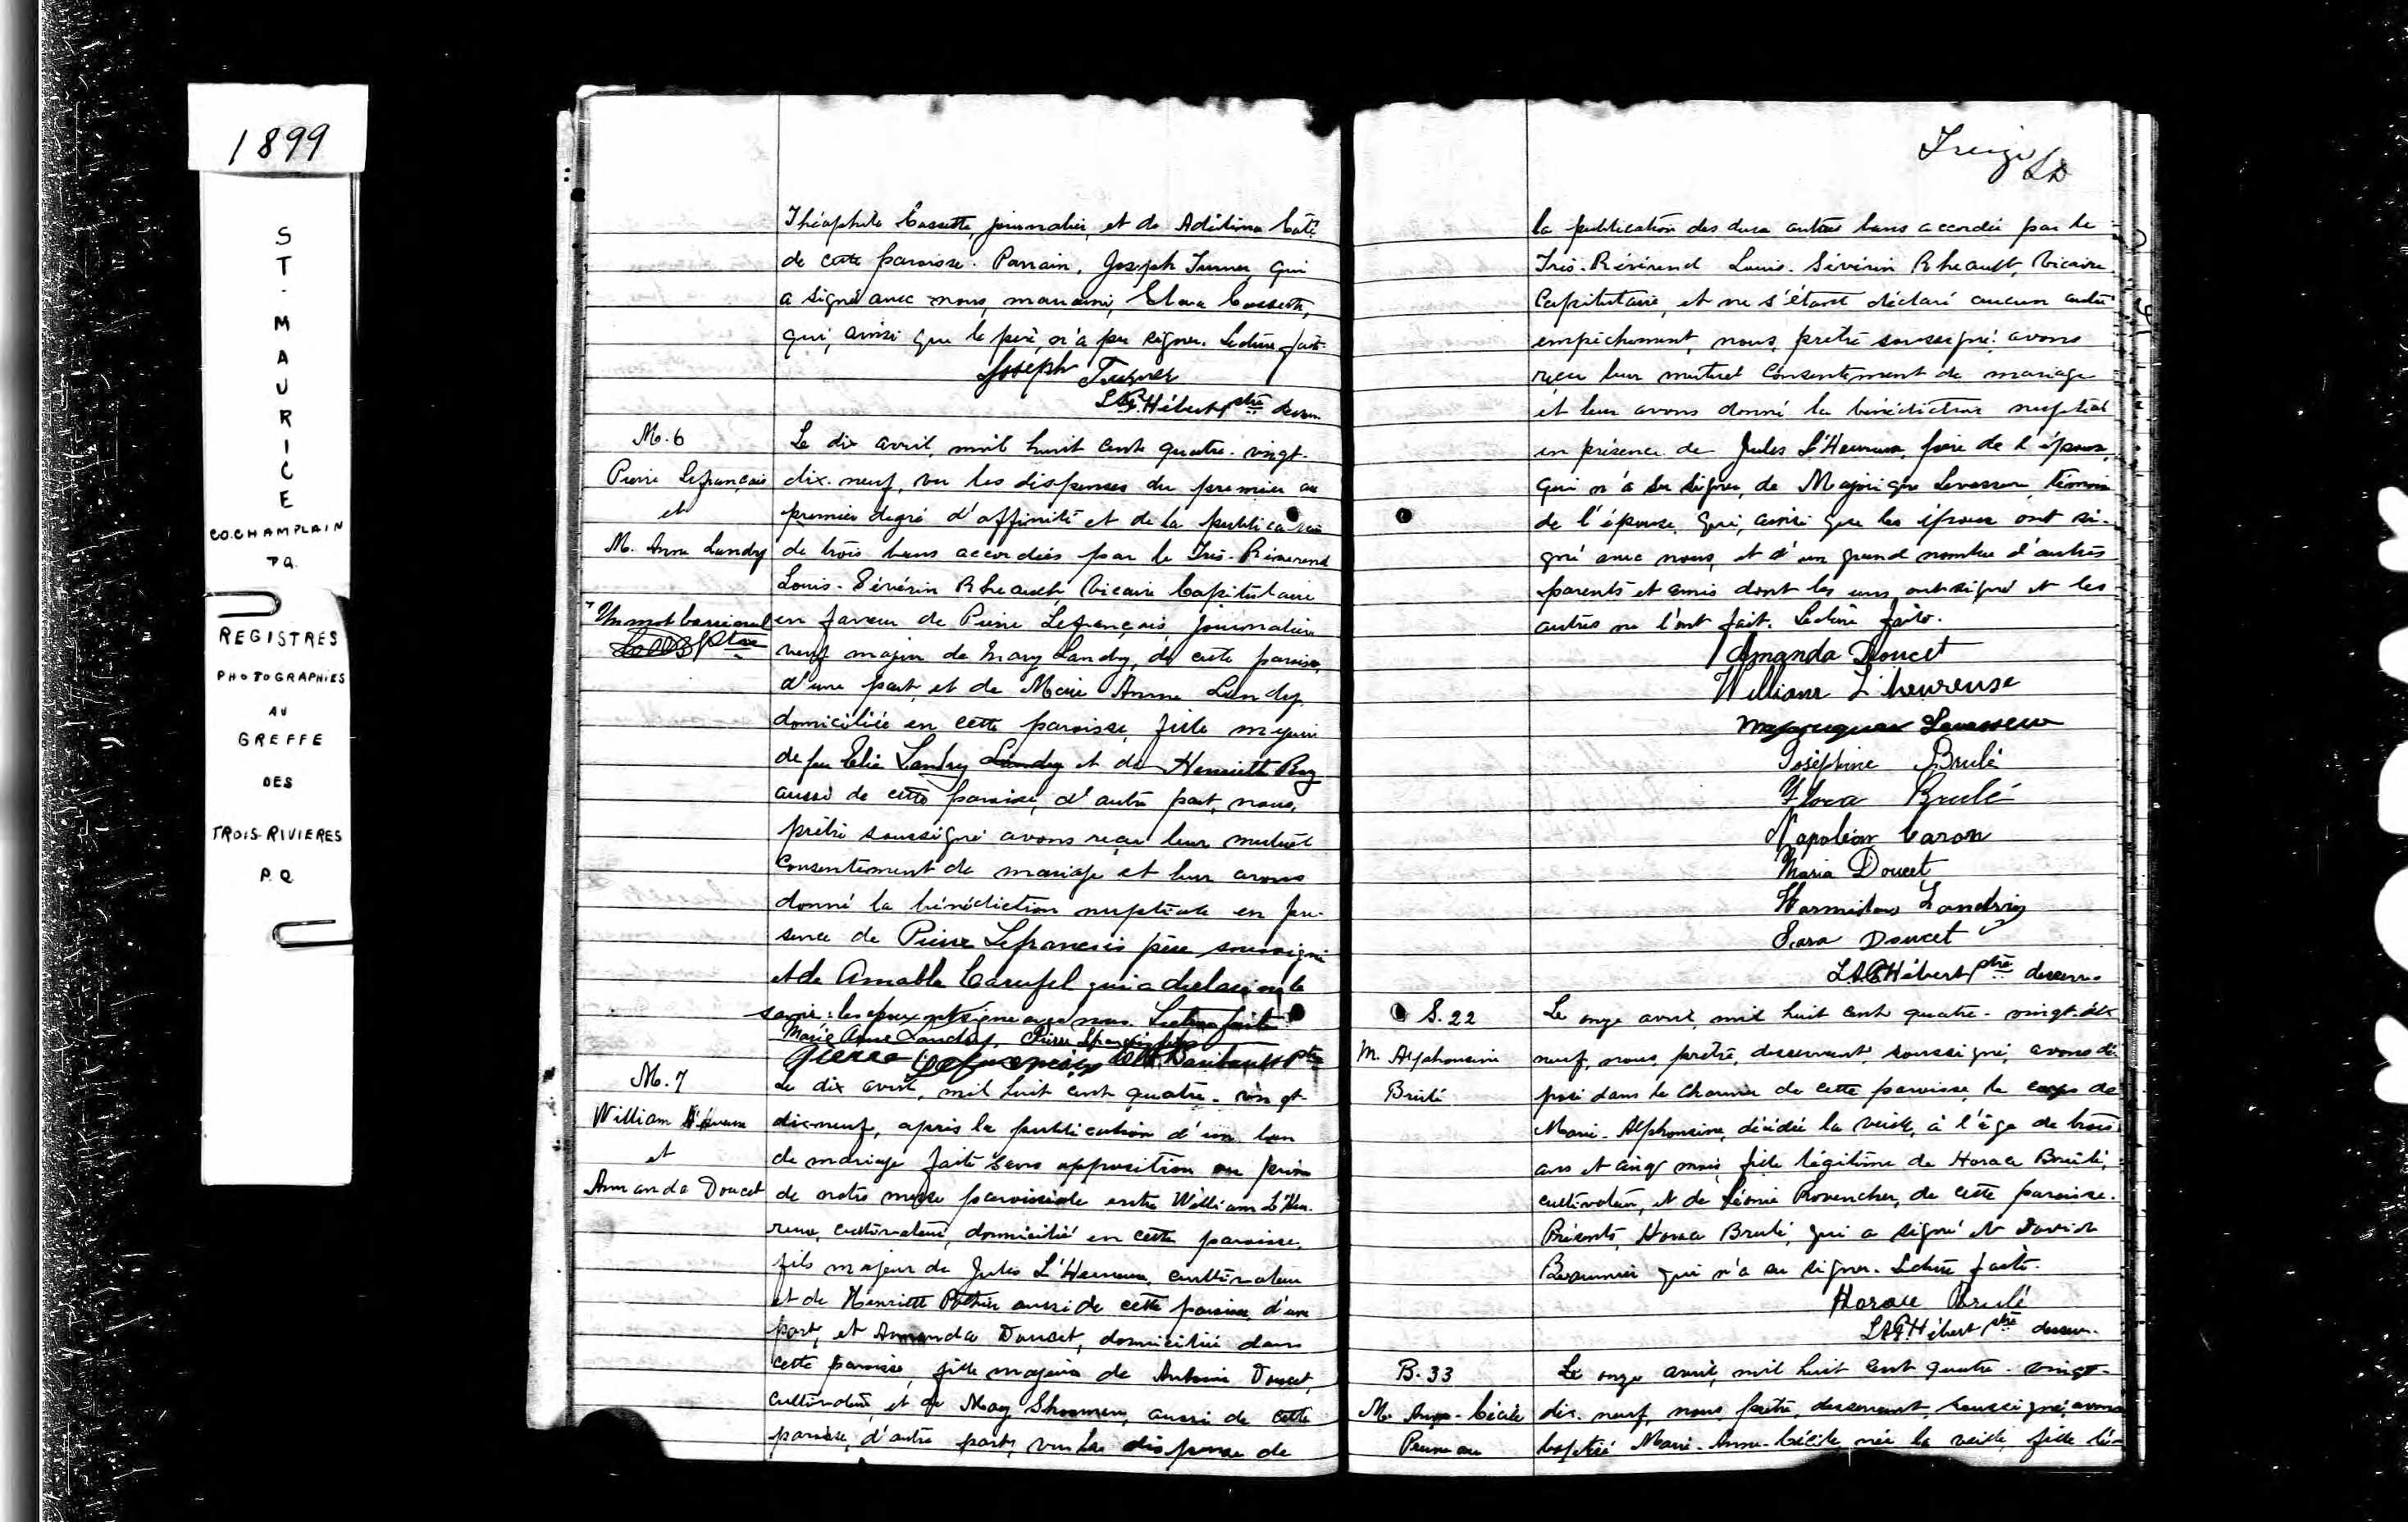 1899
ST. MAURICE
CO. CHAMPLAIN
P.Q.
REGISTRES
PHOTOGRAPHIÉS
AU
GREFFE
DES
TROIS-RIVIERES
P.Q
Théophile Cossette, journalier, et de Adelina Côté
de cette paroisse. Parrain, Joseph Turner qui
a signé avec nous, marraine, Clara Cossette,
qui, ainsi que le père, n'a pu signer. Lecture faite
Joseph Turner
Hébert ptre desserv.
M. 6
Pierre Lefrançais
et
M. Anne Landry
Un mot barré nul
ptre
Le dix avril, mil huit cent quatre-vingt-
dix-neuf, vu les dispenses du premier au
premier degré d'affinité et de la publication
de trois bans accordées par le Très-Révérend
Louis-Sévérin Rheault, Vicaire Capitulaire
en faveur de Pierre Lefrançais, journalier
veuf majeur de Mary Landry, de cette paroisse,
d'une part, et de Marie Anne Landry
domiciliée en cette paroisse, fille majeure
de feu Elie Landry Landry et de Henriette Roy
aussi de cette paroisse, d'autre part, nous,
prêtre soussigné avons reçu leur mutuel
consentement de mariage et leur avons
donné la bénédiction nuptiale en pré-
sence de Pierre Lefrancais père soussigné
et de Amable Carufel qui a déclaré ne le
savoir: les époux ont signé avec nous. Lecture faite
Marie Anne Landry, Pierre Lefrançais fils
Pierre Lefrançois ptre
M. 7
William L'Heureux
et
Amanda Doucet
Le dix avril, mil huit cent quatre-vingt
dix-neuf, après la publication d'un ban
de mariage faite sans opposition au prône
de notre messe paroissiale entre William L'Heu-
reux, cultivateur, domicilié en cette paroisse,
fils majeur de Jules L'Heureux, cultivateur
et de Henriette aussi de cette paroisse d'une
part, et Amanda Doucet, domiciliée dans
cette paroisse, fille majeure de Antoine Doucet,
cultivateur, et de Mary aussi de cette
paroisse, d'autre part, vu la dispense de
Treize
la publication des deux autres bans accordée par le
Très-Révérend Louis-Sévérin Rheault, Vicaire
Capitulaire, et ne s'étant déclaré aucun autre
empêchement, nous, prêtre soussigné avons
reçu leur mutuel consentement de mariage
et leur avons donné la bénédiction nuptiale
en présence de Jules L'Heureux, père de l'époux,
qui n'a su signer, de Majorique Levasseur, témoin
de l'épouse, qui, ainsi que les époux ont si-
gné avec nous, et d'un grand nombre d'autres
parents et amis dont les uns ont signé et les
autres ne l'ont fait. Lecture faite.
Amanda Doucet
William L'heureuse
Levasseur
Joséphine Brulé
Flora Brulé
Napoléon Caron
Maria Doucet
Hormidas Landry
Sara Doucet
Hébert ptre desserv.
S. 22
M. Alphonsine
Brulé
Le onze avril, mil huit cent quatre-vingt-dix
neuf, nous, prêtre, desservant, soussigné, avons dé-
posé dans le charnier de cette paroisse, le corps de
Marie-Alphonsine, décédée la veille, à l'âge de trois
ans et cinq mois, fille légitime de Horace Brulé,
cultivateur, et de Léonie Provencher, de cette paroisse.
Présents, Horace Brulé, qui a signé et David
Beaumier qui n'a su signer. Lecture faite.
Horace Brulé
Hébert ptre desserv.
B. 33
M. Anne-Cécile
Pruneau
Le onze avril, mil huit cent quatre-vingt-
dix-neuf, nous, prêtre, desservant, soussigné, avons
baptisé Marie-Anne-Cécile, née la veille, fille lé-